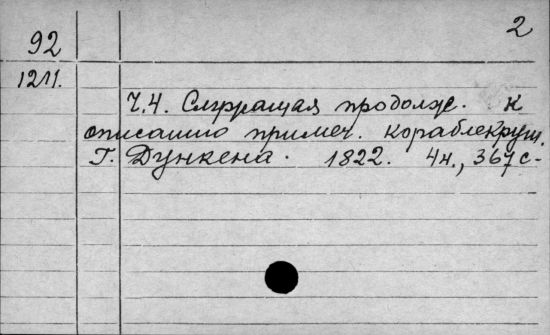 2
92
1211.
Ч.4. Служащая продолж. к
описанию примеч. кораблекруш.
Г. Дункена. 1822. 4н., 367 с.